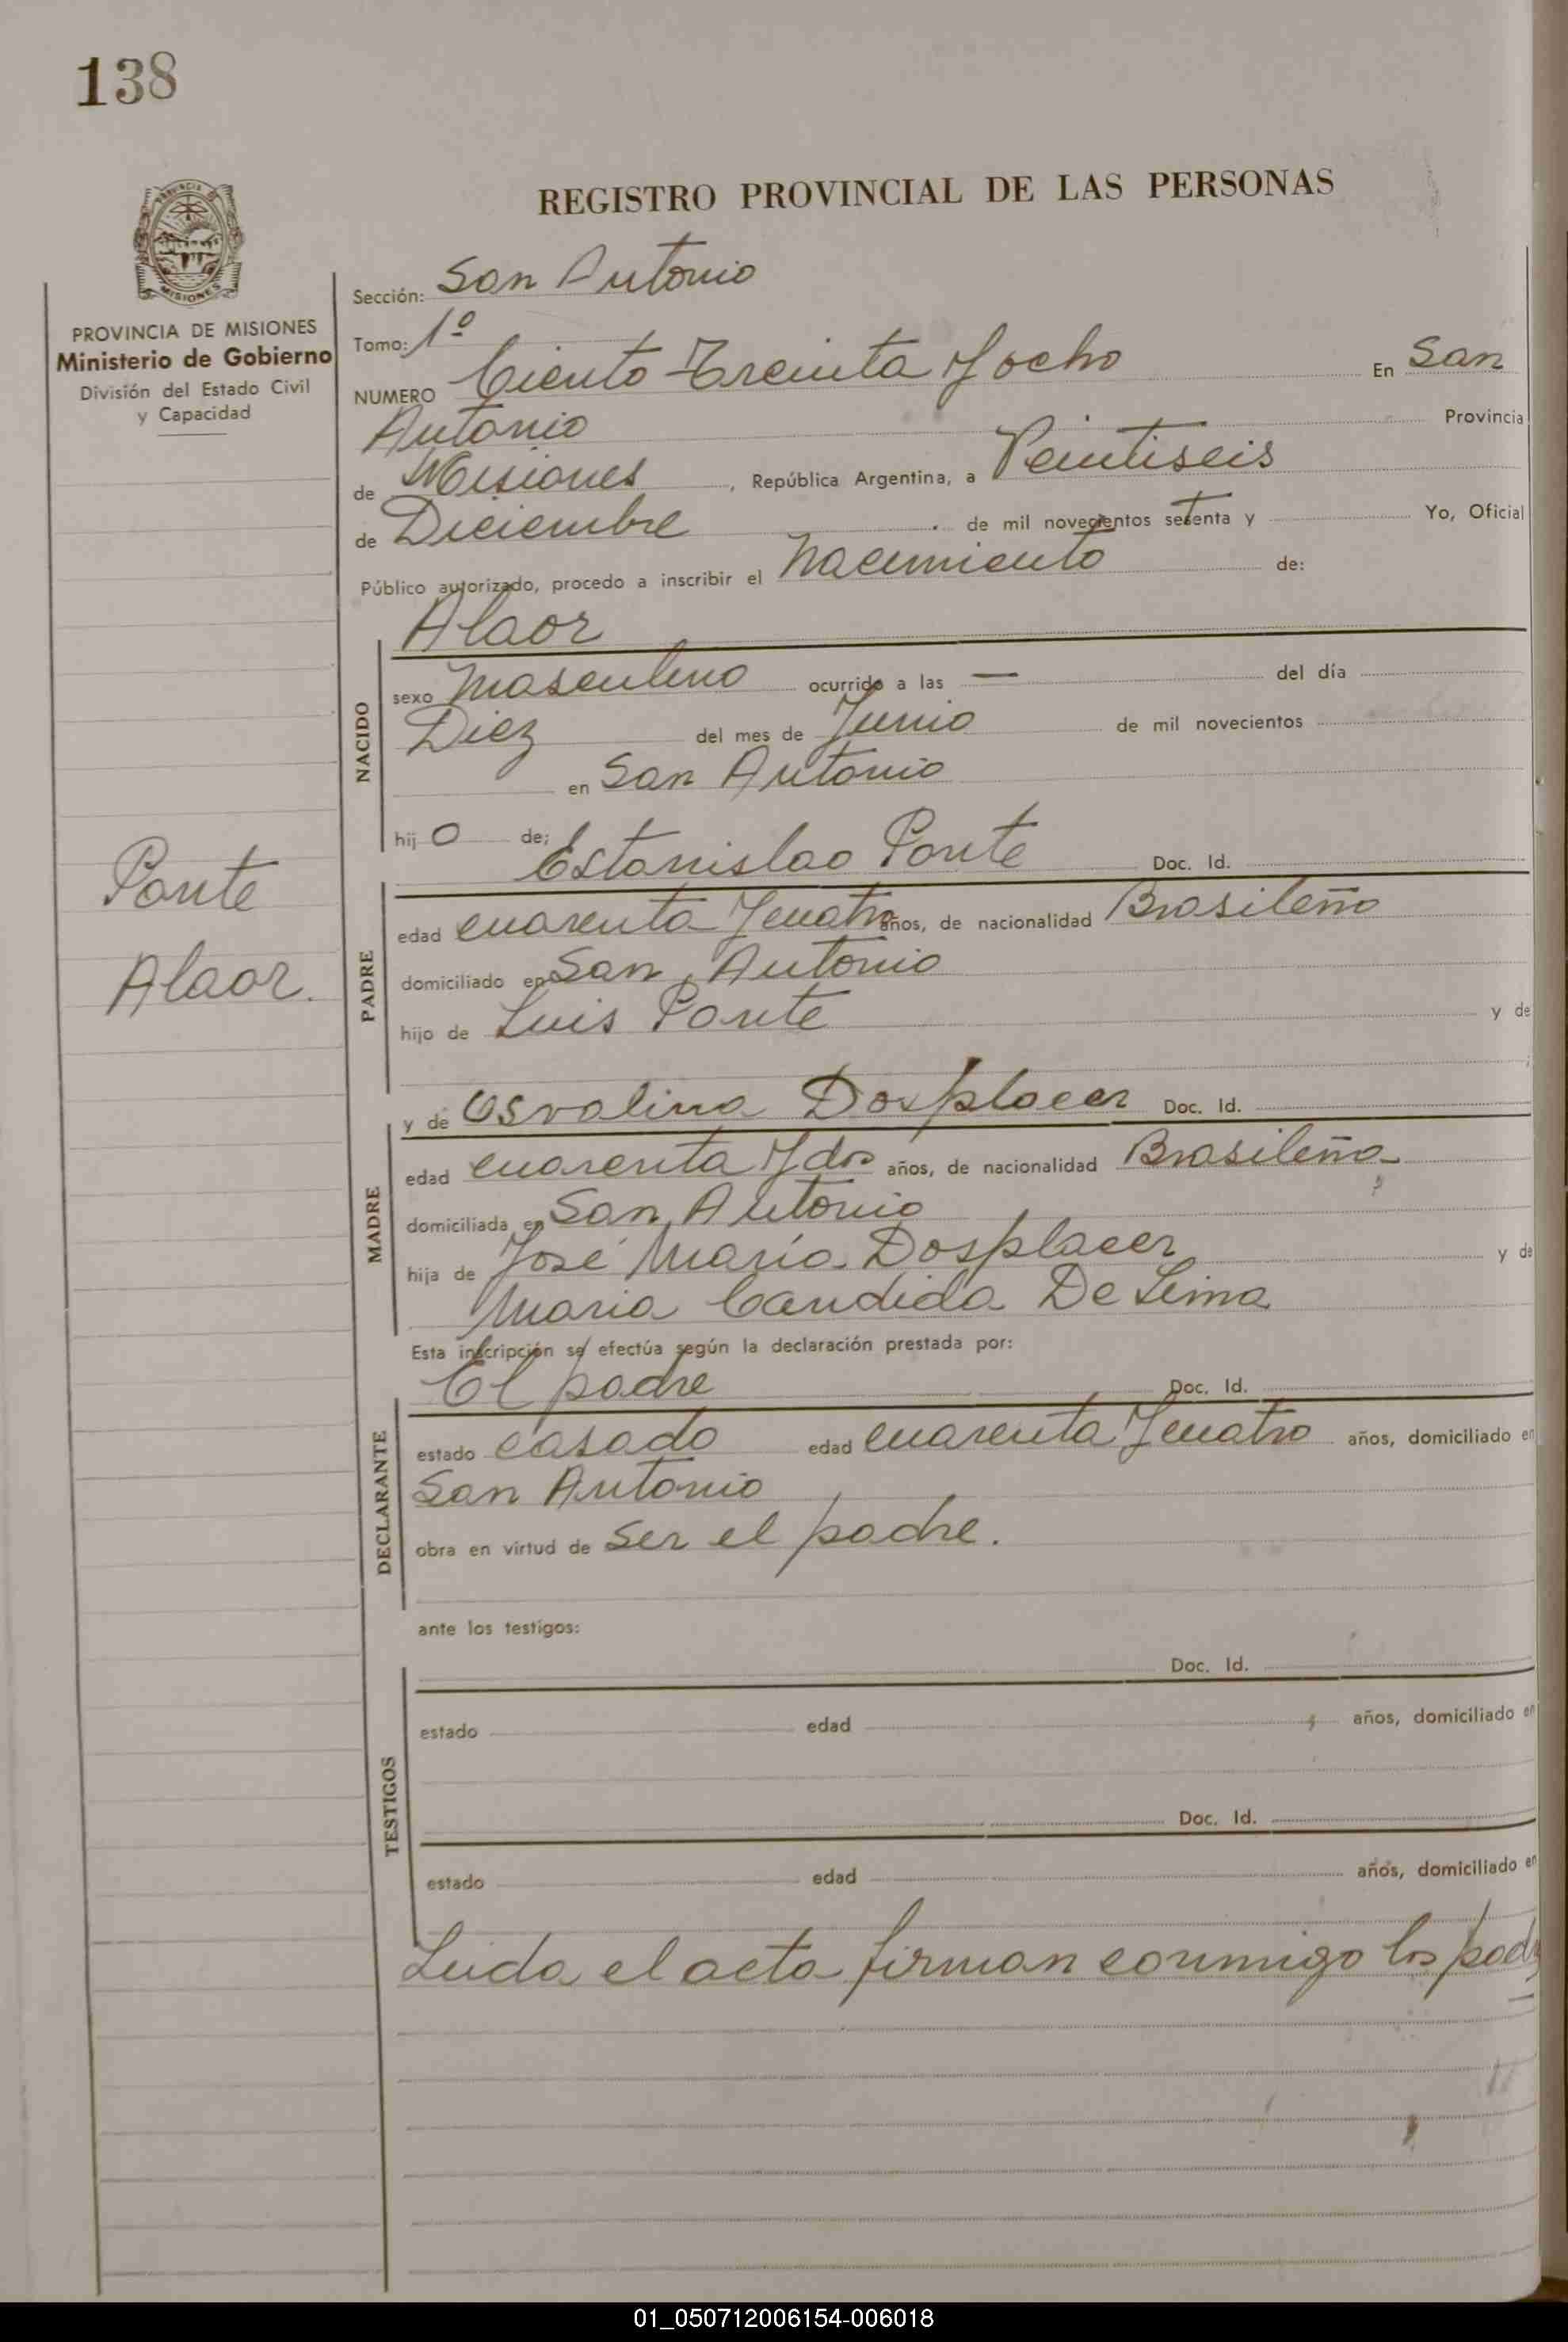 138
REGISTRO PROVINCIAL DE LAS PERSONAS
PROVINCIA DE MISIONES
MISIONES
PROVINCIA DE MISIONES
Ministerio de Gobierno
División del Estado Civil
y Capacidad
Sección: San Antonio
Tomo: 1º
NUMERO Ciento Treinta Y ocho En San
Antonio Provincia
de Misiones, República Argentina, a Veintiseis
de Diciembre de mil novecientos setenta y Yo, Oficial
Público autorizado, procedo a inscribir el Nacimiento de:
Alaor
NACIDO
sexo Masculino ocurrido a las — del día
Diez del mes de Junio de mil novecientos
en San Antonio
hijo de: Estanislao Ponte Doc. Id.
Ponte
Alaor.
PADRE
edad cuarenta Y cuatro años, de nacionalidad Brasileño
domiciliado en San Antonio
hijo de Luis Ponte y de
y de Osvalina Dosplacer Doc. Id.
MADRE
edad cuarenta Y dos años, de nacionalidad Brasileña
domiciliada en San Antonio
hija de José María Dosplacer y de
Maria Candida De Lima
Esta inscripción se efectúa según la declaración prestada por:
El padre Doc. Id.
DECLARANTE
estado casado edad cuarenta Y cuatro años, domiciliado en
San Antonio
obra en virtud de Ser el padre.
ante los testigos:
Doc. Id.
TESTIGOS
estado edad años, domiciliado en
Doc. Id.
estado edad años, domiciliado en
Leida el acta firman conmigo los pad
01_050712006154-006018